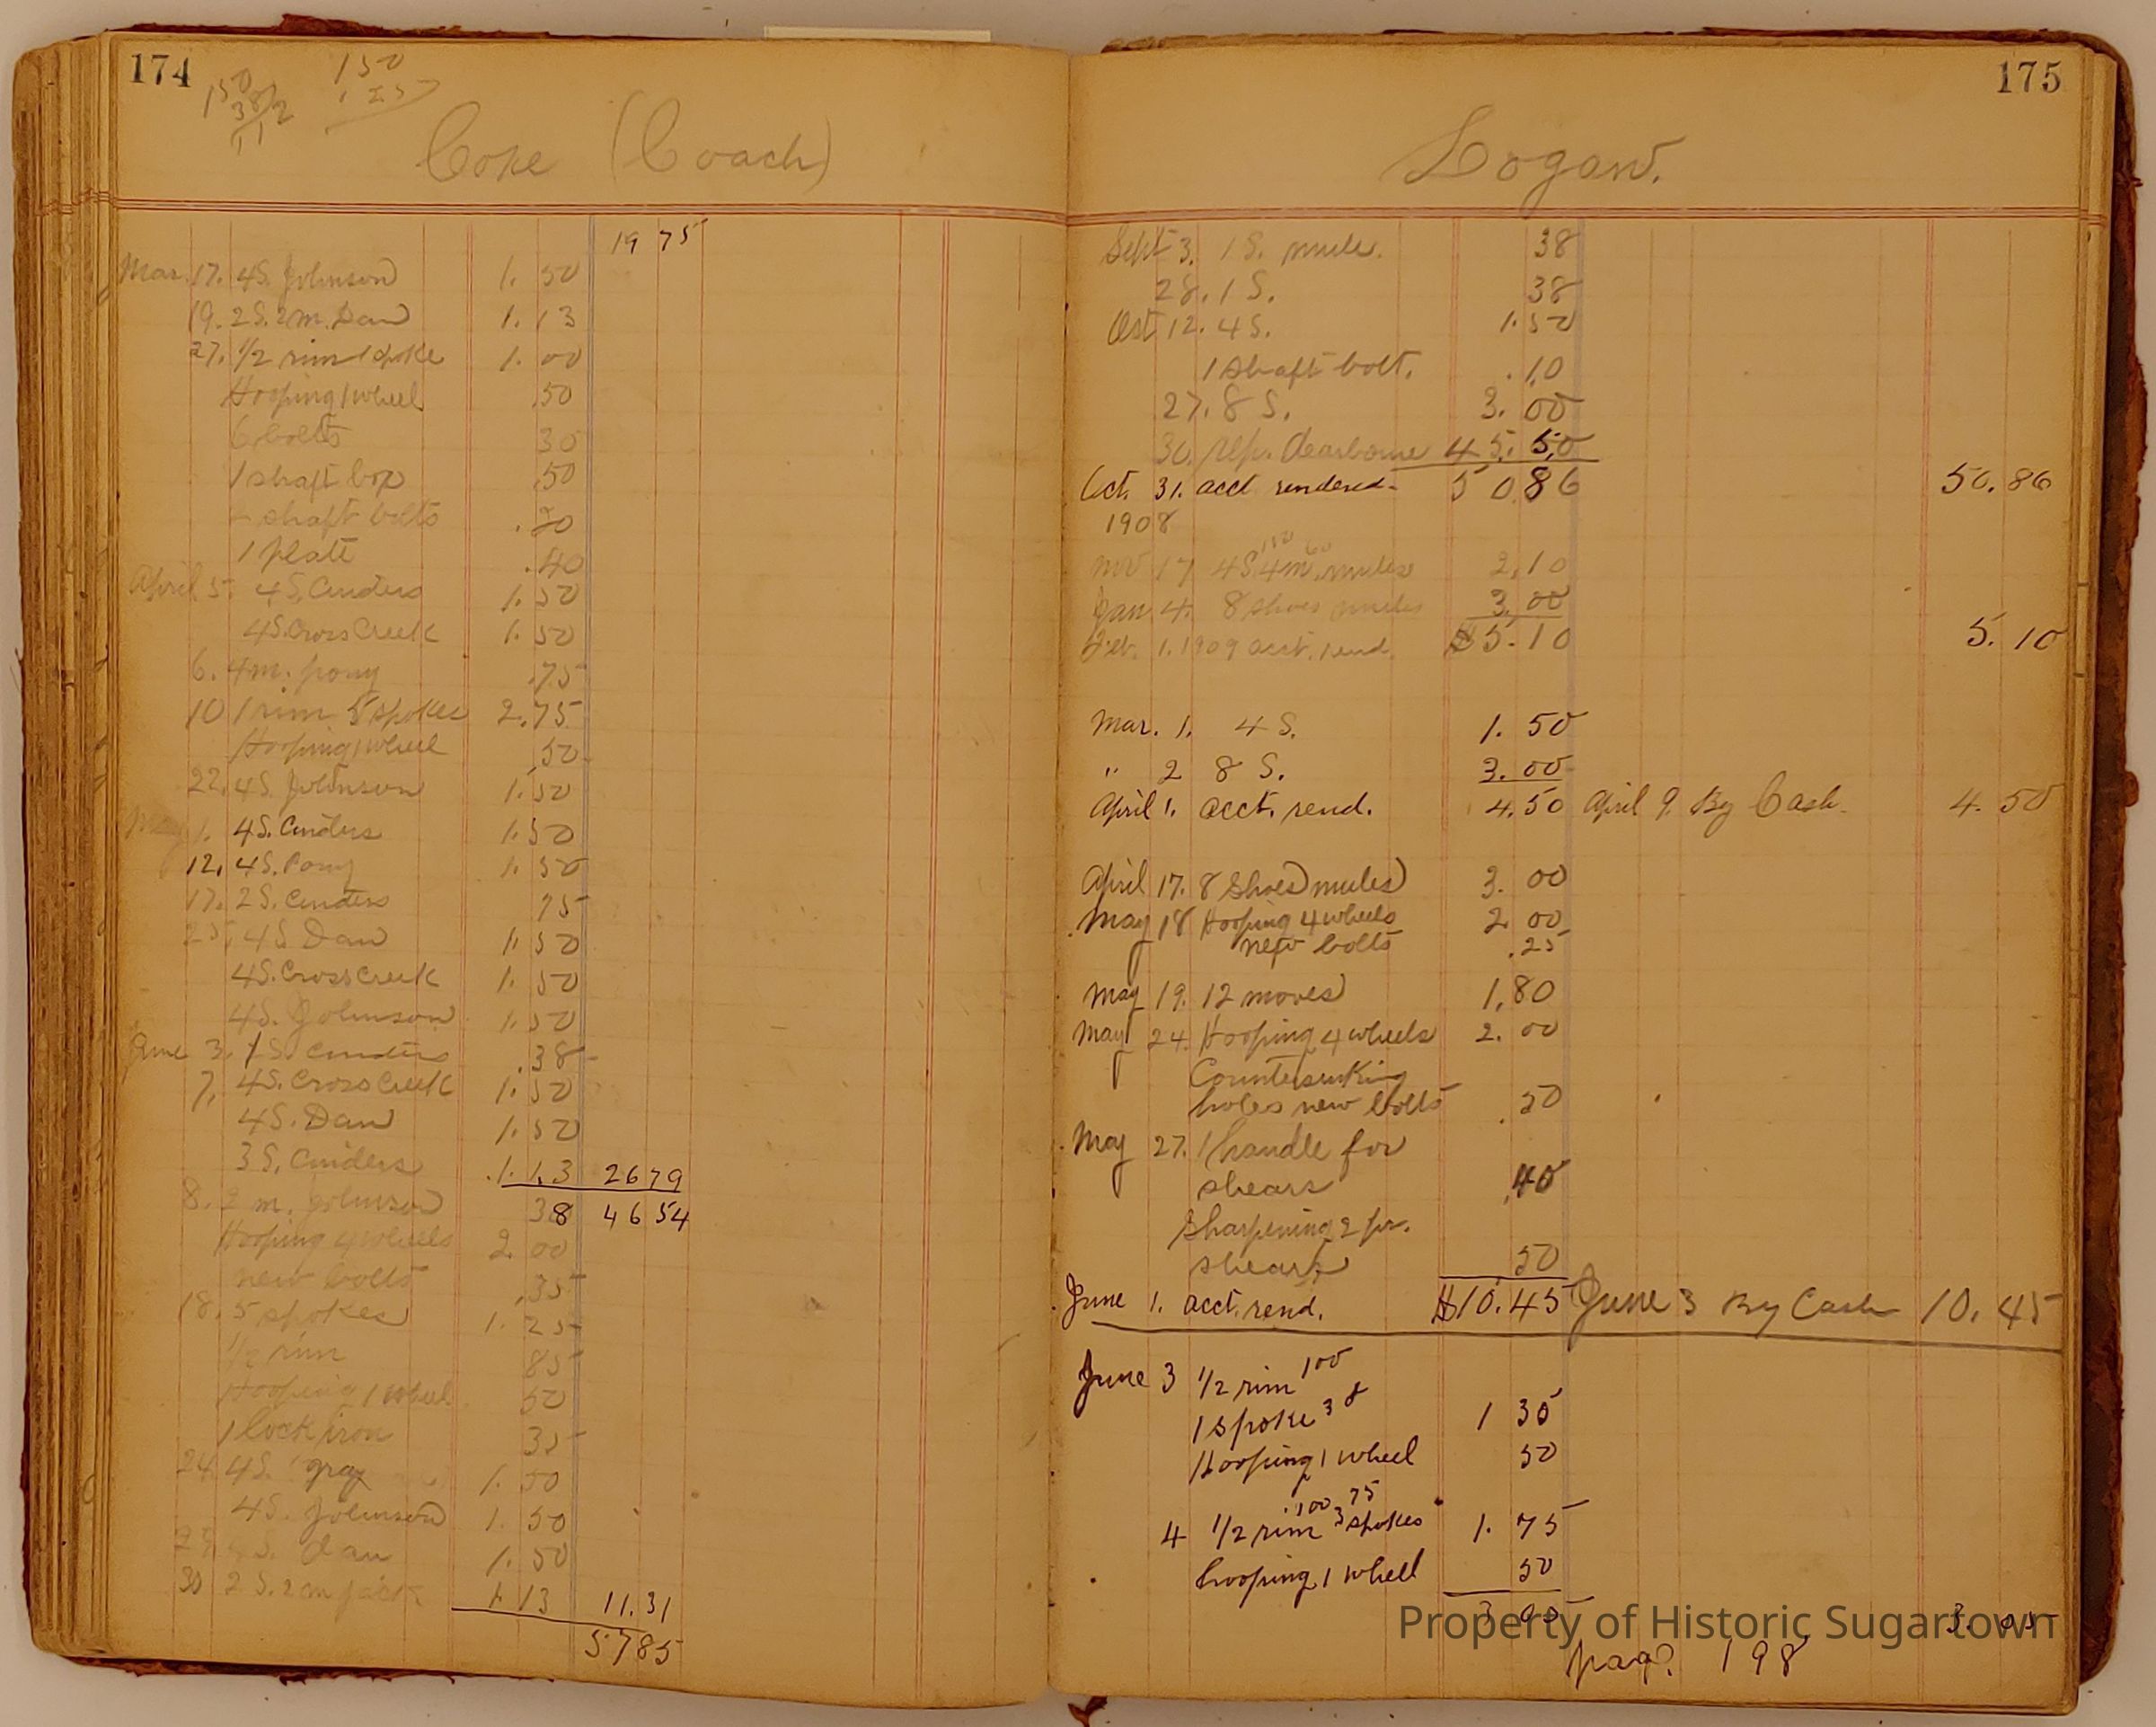 174
150
150
.25
Coxe (Coach)
19 75
Mar. 17. 4S. Johnson 1. 50
19. 2S. 2m. Dan 1. 13
27. 1/2 rim 1 spoke 1. 00
Hooping 1 wheel .50
6 bolts 30
1 shaft box .50
shaft bolts .20
1 plate .40
April 5. 4S. Cinders 1. 50
4S. Cross Creek 1. 50
6. 4m. pony .75
10 1 rim 5 spokes 2.75
Hooping 1 wheel .50
22. 4S. Johnson 1. 50
May 1. 4S. Cinders 1.50
12. 4S. Pony 1. 50
17. 2S. Cinders 75
25. 4S. Dan 1. 50
4S. Cross Creek 1. 50
4S. Johnson 1. 50
June 3. 1S. Cinders .38
7. 4S. Cross Creek 1. 50
4S. Dan 1. 50
3S. Cinders 1.13 2679
8. 2 m. Johnson 38 4654
Hooping 4 wheels 2. 00
new bolts .35
18. 5 spokes 1. 25
1/2 rim 85
Hooping 1 wheel 50
1 lock iron 35
24. 4S. Gray 1. 50
4S. Johnson 1. 50
29 4S. Dan 1. 50
30 2 S. 2m Jack 1. 13 11.31
5785
175
Logan.
Sept 3. 1 S. mule. 38
28. 1 S. 38
Oct 12. 4 S. 1.50
1 shaft bolt. .10
27. 8 S. 3. 00
30. rep. dearborne 45. 50
Oct. 31. acct rendered- 50 86 50.86
1908
150 60
Nov 17 4S. 4m. mules 2.10
Jan 4. 8 shoes mules 3. 00
Feb. 1. 1909 acct. rend. $5.10 5. 10
Mar. 1. 4 S. 1. 50
" 2 8 S. 3. 00
April 1. acct. rend. 4.50 April 9. By Cash. 4. 50
April 17. 8 Shoes mules 3. 00
May 18 Hooping 4 wheels 2 00
new bolts .25
May 19. 12 moves 1,80
May 24. Hooping 4 wheels 2. 00
Countersunking
holes new bolts .50
May 27. 1 handle for
shears .40
Sharpening 2 pr.
shears 50
June 1. acct. rend. $10.45 June 3 By Cash 10. 45
June 3 1/2 rim 100
1 spoke 38 1 35
Hooping 1 wheel 50
100 75
4 1/2 rim 3 spokes 1. 75
hooping 1 wheel 50
3 95 3. 95
Property of Historic Sugartown
page 198